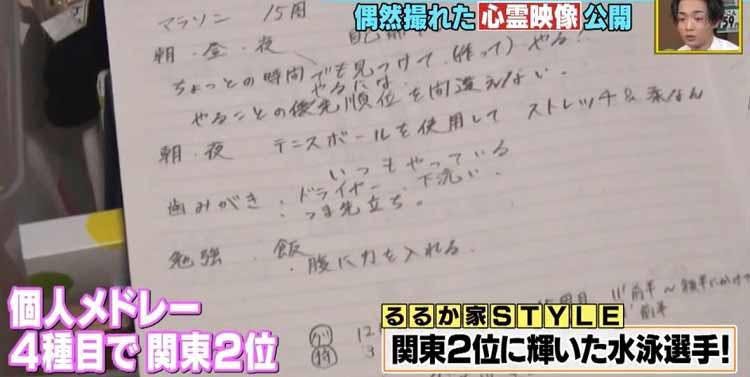 偶然撮れた心霊映像公開
マラソン 15周
朝・昼・夜
ちょっとの時間でも見つけて(作って)やる!
やるには
やることの優先順位を間違えない。
朝・夜 テニスボールを使用して ストレッチ&柔なん
いつもやっている
歯みがき:ドライヤー、下洗い、
:つま先立ち。
勉強・飯
・腹に力を入れる
前半〜後半にかけて
前半
12
3
個人メドレー
4種目で 関東2位
るるか家STYLE
関東2位に輝いた水泳選手!